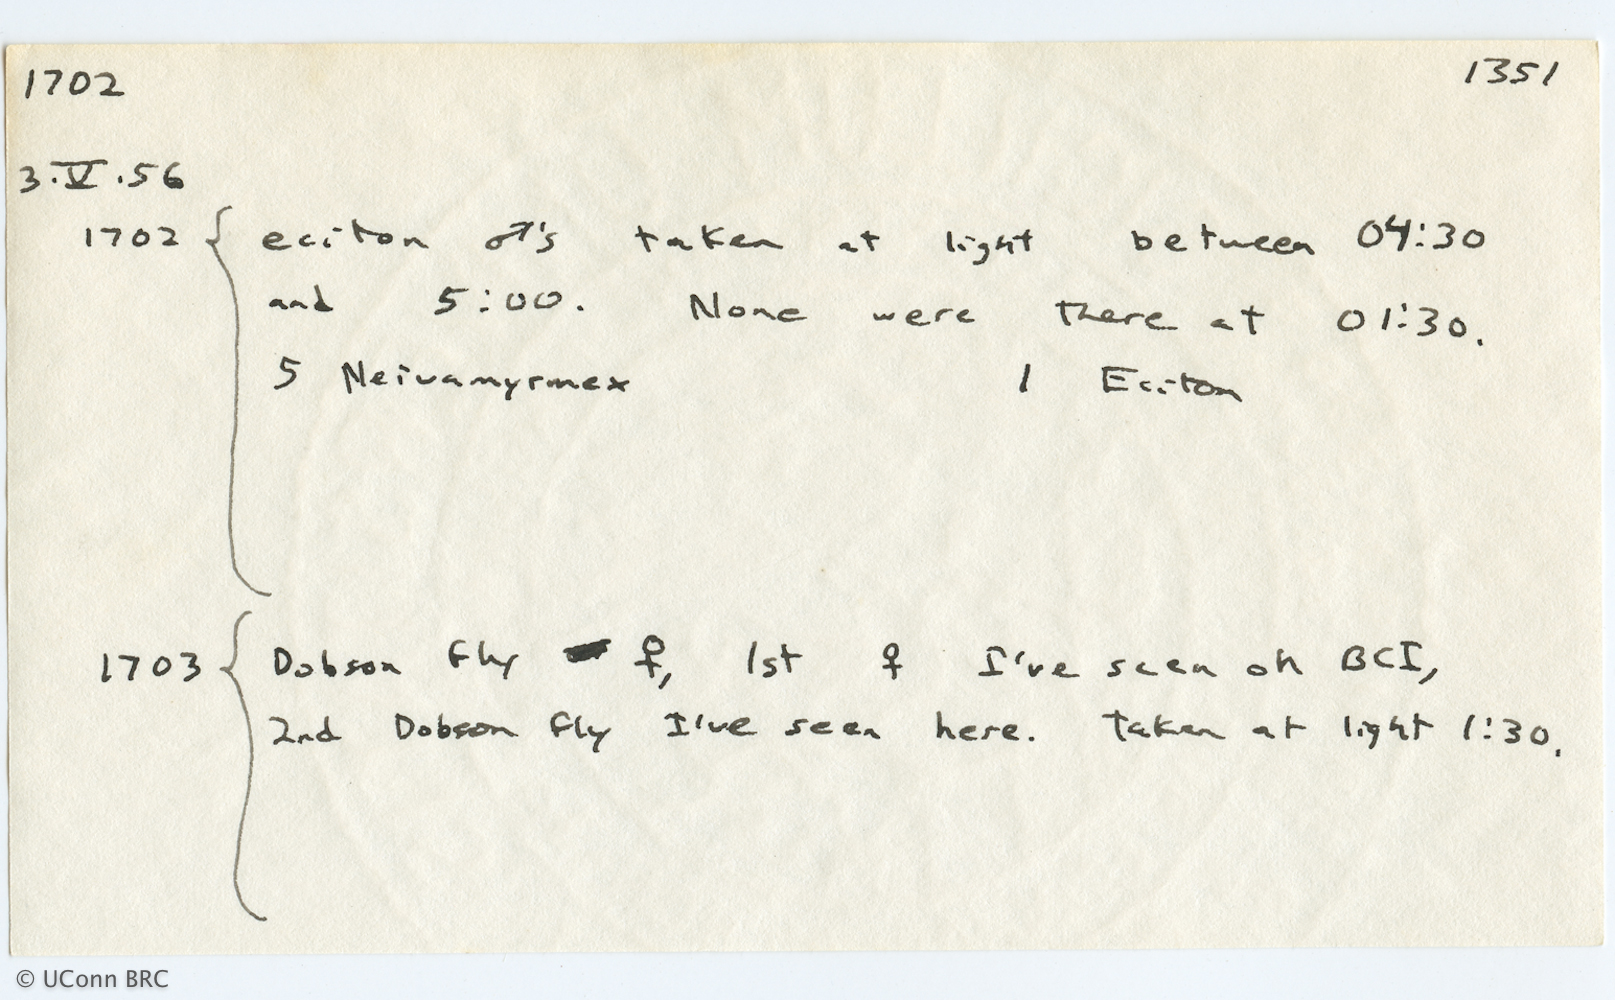 1702 1351
3.V.56
1702 { eciton ♂'s taken at light between 04:30
and 5:00. None were there at 01:30.
5 Neivamyrmex 1 Eciton
1703 { Dobson fly ♀, 1st ♀ I've seen on BCI,
2nd Dobson fly I've seen here. Taken at light 1:30.
© UConn BRC